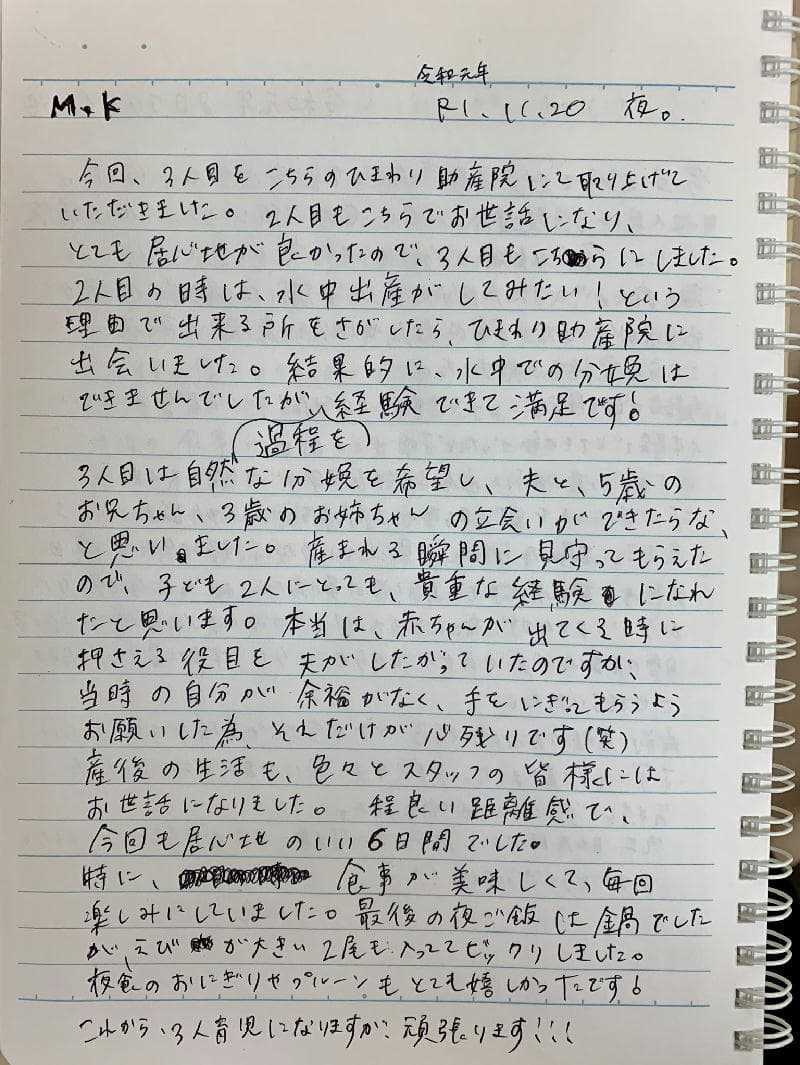 令和元年
M.K R1.11.20 夜。
今回、3人目をこちらのひまわり助産院にて取り上げて
いただきました。2人目もこちらでお世話になり、
とても居心地が良かったので、3人目もこちらにしました。
2人目の時は、水中出産がしてみたい!という
理由で出来る所をさがしたら、ひまわり助産院に
出会いました。結果的に、水中での分娩は
できませんでしたが、経験できて満足です!
過程を
3人目は自然な分娩を希望し、夫と、5歳の
お兄ちゃん、3歳のお姉ちゃんの立会いができたらな、
と思いました。産まれる瞬間に見守ってもらえた
ので、子ども2人にとっても、貴重な経験になれ
たと思います。本当は、赤ちゃんが出てくる時に
押さえる役目を夫がしたがっていたのですが、
当時の自分が余裕がなく、手をにぎってもらうよう
お願いした為、それだけが心残りです(笑)
産後の生活も、色々とスタッフの皆様には
お世話になりました。程良い距離感で、
今回も居心地のいい6日間でした。
時に、食事が美味しくて、毎回
楽しみにしていました。最後の夜ご飯は鍋でした
が、えびが大きい2尾も入っててビックリしました。
夜食のおにぎりやプルーンもとても嬉しかったです!
これから、3人育児になりますが、頑張ります!!!